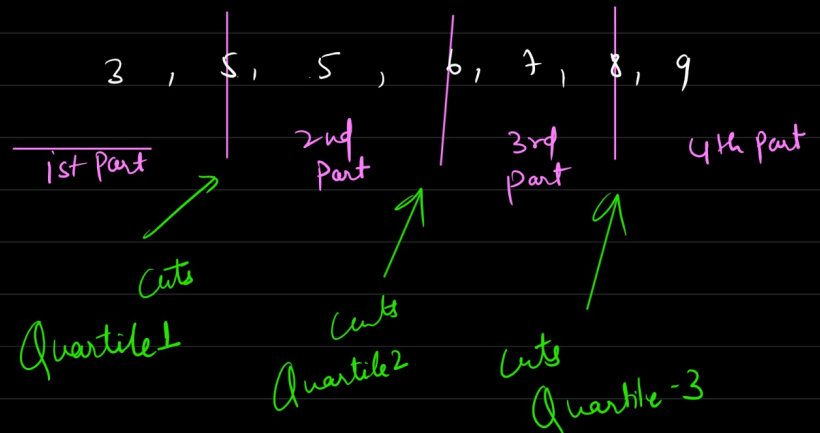 3 , 5, 5 , 6, 7, 8, 9
1st Part
2nd
Part
3rd
Part
4th Part
Cuts
Quartile1
Cuts
Quartile2
Cuts
Quartile-3